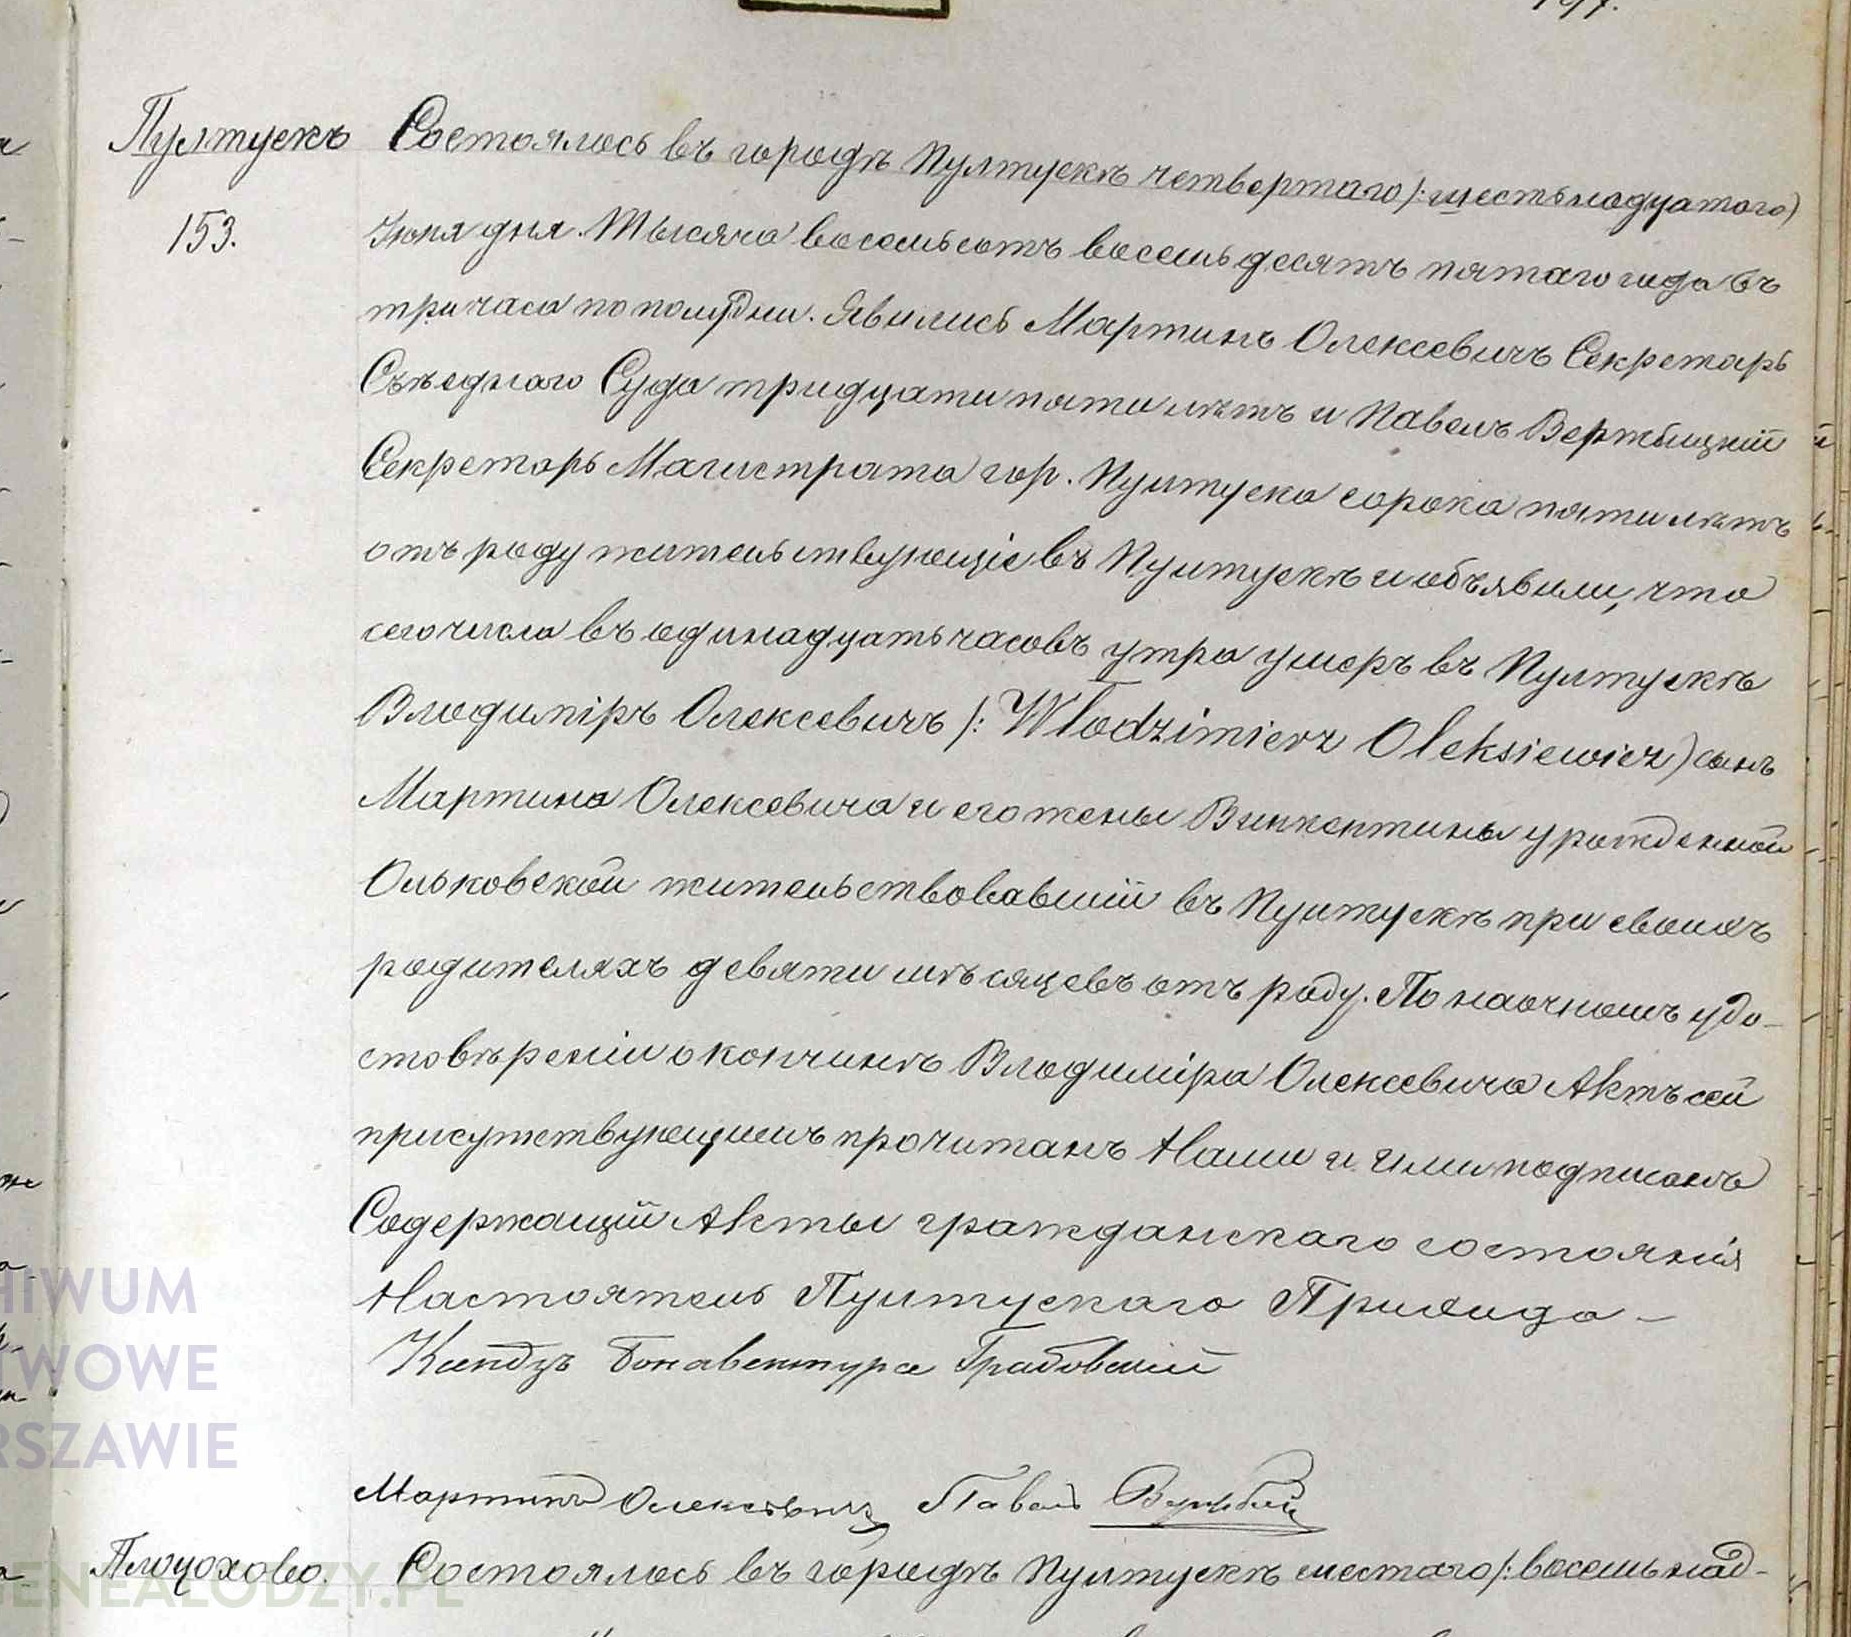 Пултускъ
153.
Состоялось въ городѣ Пултускѣ четвертаго /: шестьнадцатого)
Іюня дня. Тысяча восемьсотъ восемьдесятъ пятаго года въ
три часа по полудни. Явились Мартинъ Олексевичъ Секретарь
Съѣзднаго Суда тридцати пяти лѣтъ и Павелъ Вержбицкій
Секретарь Магистрата гор. Пултуска сорока пяти лѣтъ
отъ роду жительствующіе въ Пултускѣ и объявили, что
сего числа въ одинадцать часовъ утра умеръ въ Пултускѣ
Владиміръ Олексевичъ /: Włodzimierz Oleksiewicz) сынъ
Мартина Олексевича и его жены Винкентины урожденной
Ольковской жительствовавшій въ Пултускѣ при своихъ
родителяхъ девяти мѣсяцевъ отъ роду. По наочномъ удо-
стовѣреніи о кончинѣ Владиміра Олексевича Актъ сей
присутствующимъ прочитанъ Нами и Ими подписанъ
Содержащій Акты гражданскаго состоянія
Настоятель Пултускаго Прихода -
Ксендзъ Бонавентура Грабовскій
Мартинъ Олексевичъ Павелъ
Плоцохово. Состоялось въ городѣ Пултускѣ шестаго /: восемьнад-
HIWUM
TWOWE
RSZAWIE
GENEALODZY.PL